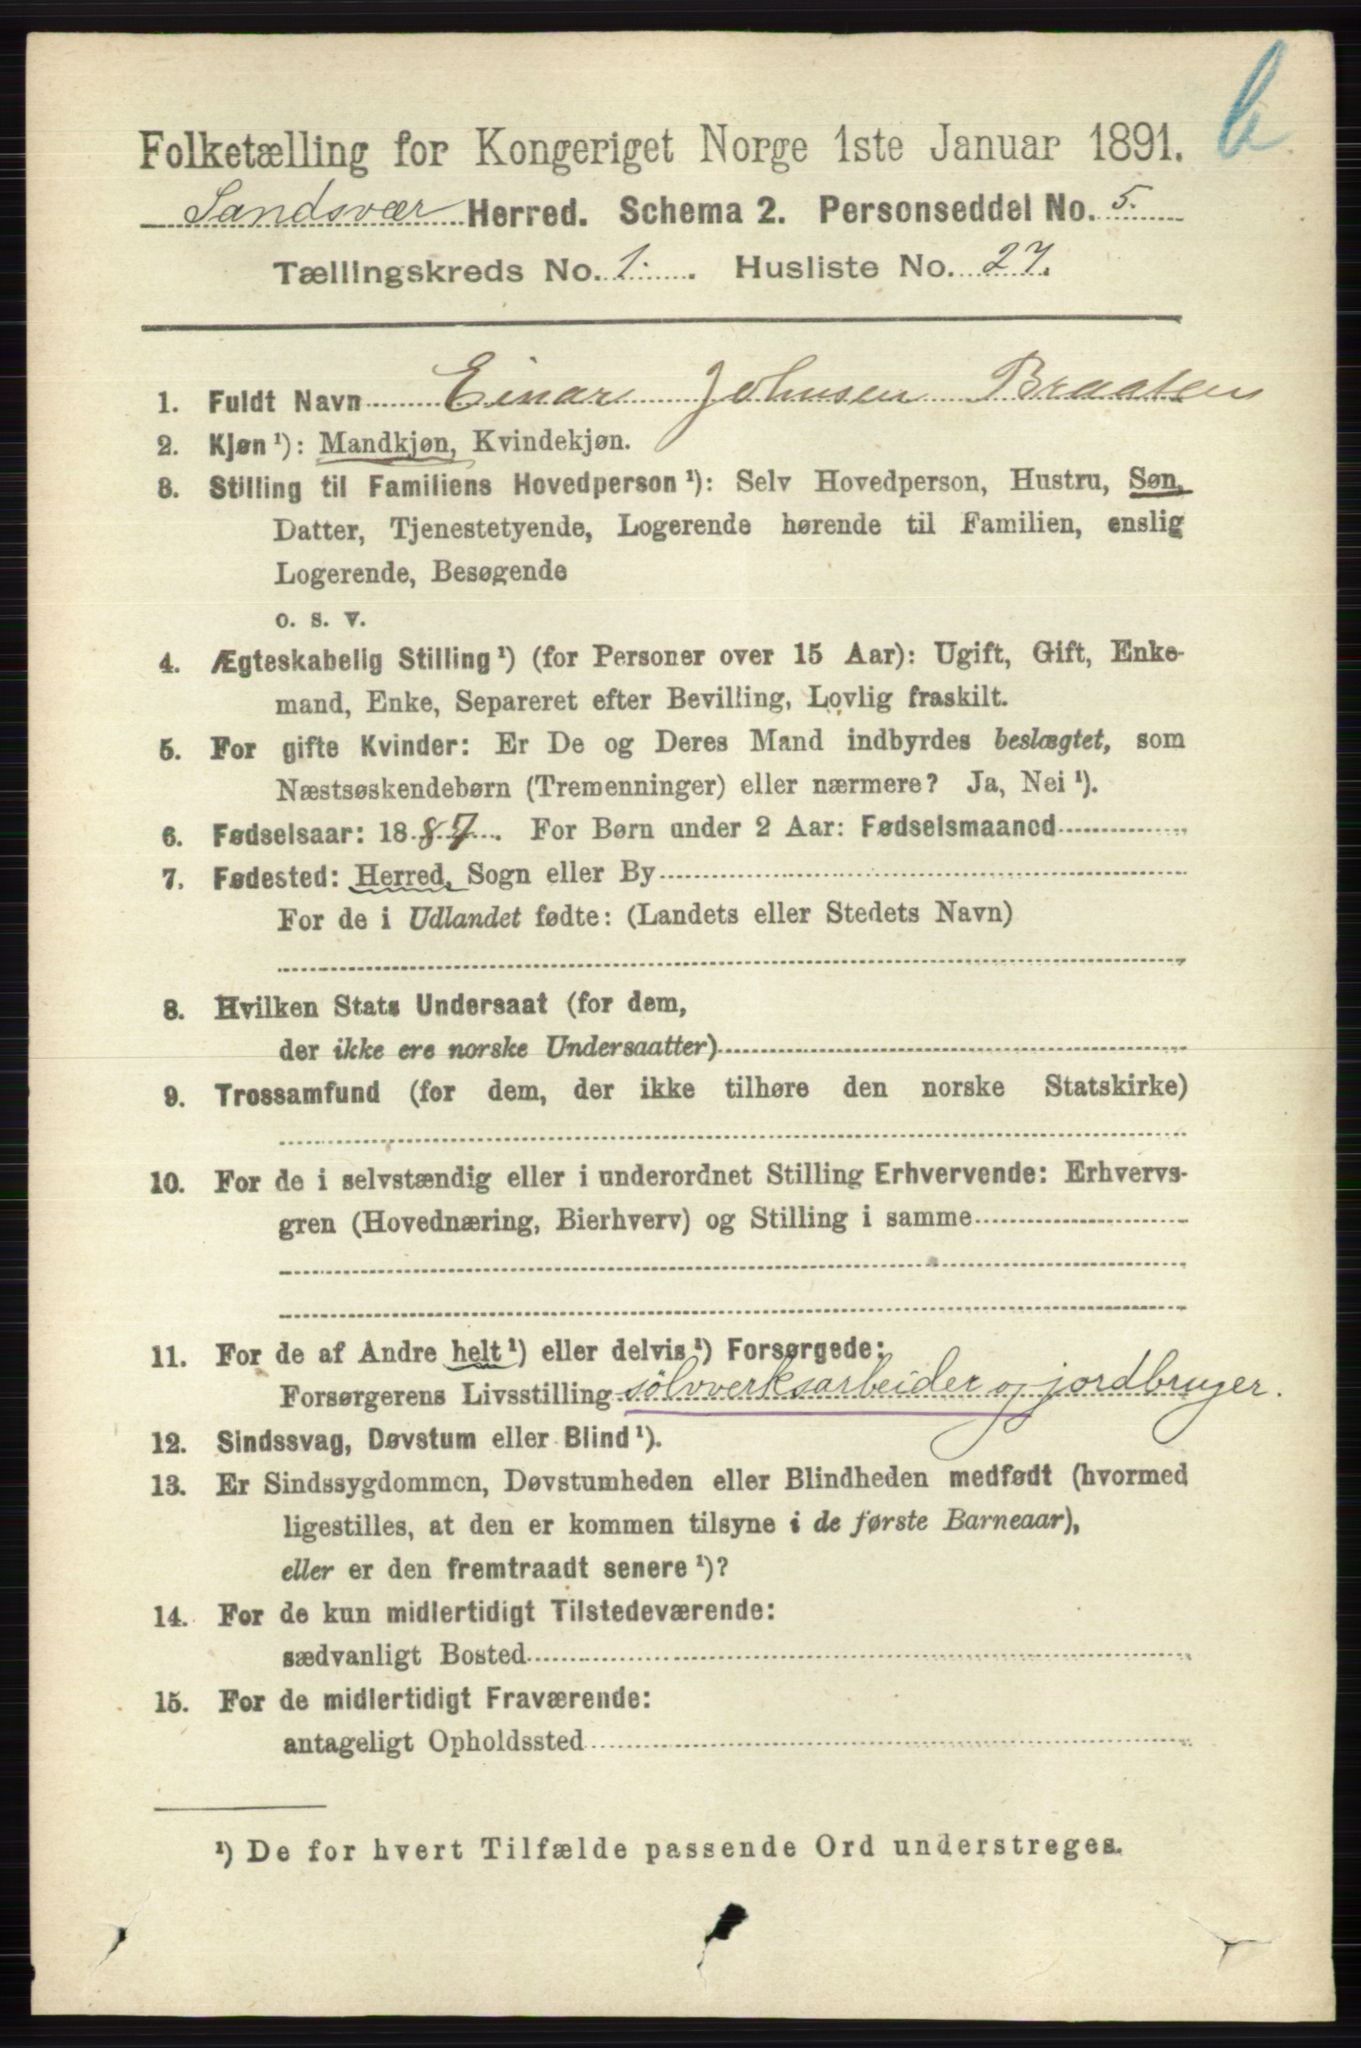 b
Folketælling for Kongeriget Norge 1ste Januar 1891.
Sandsvær Herred. Schema 2. Personseddel No. 5.
Tællingskreds No. 1. Husliste No. 27.
1. Fuldt Navn Einar Johnsen Braaten
2. Kjøn ¹): Mandkjøn, Kvindekjøn.
3. Stilling til Familiens Hovedperson ¹): Selv Hovedperson, Hustru, Søn,
Datter, Tjenestetyende, Logerende hørende til Familien, enslig
Logerende, Besøgende
o. s. v.
4. Ægteskabelig Stilling ¹) (for Personer over 15 Aar): Ugift, Gift, Enke-
mand, Enke, Separeret efter Bevilling, Lovlig fraskilt.
5. For gifte Kvinder: Er De og Deres Mand indbyrdes beslægtet, som
Næstsøskendebørn (Tremenninger) eller nærmere? Ja, Nei ¹).
6. Fødselsaar: 1887. For Børn under 2 Aar: Fødselsmaaned
7. Fødested: Herred, Sogn eller By
For de i Udlandet fødte: (Landets eller Stedets Navn)
8. Hvilken Stats Undersaat (for dem,
der ikke ere norske Undersaatter)
9. Trossamfund (for dem, der ikke tilhøre den norske Statskirke)
10. For de i selvstændig eller i underordnet Stilling Erhvervende: Erhvervs-
gren (Hovednæring, Bierhverv) og Stilling i samme
11. For de af Andre helt ¹) eller delvis ¹) Forsørgede:
Forsørgerens Livsstilling sölvverksarbeider og jordbruger.
12. Sindssvag, Døvstum eller Blind ¹).
13. Er Sindssygdommen, Døvstumheden eller Blindheden medfødt (hvormed
ligestilles, at den er kommen tilsyne i de første Barneaar),
eller er den fremtraadt senere ¹)?
14. For de kun midlertidigt Tilstedeværende:
sædvanligt Bosted
15. For de midlertidigt Fraværende:
antageligt Opholdssted
¹) De for hvert Tilfælde passende Ord understreges.